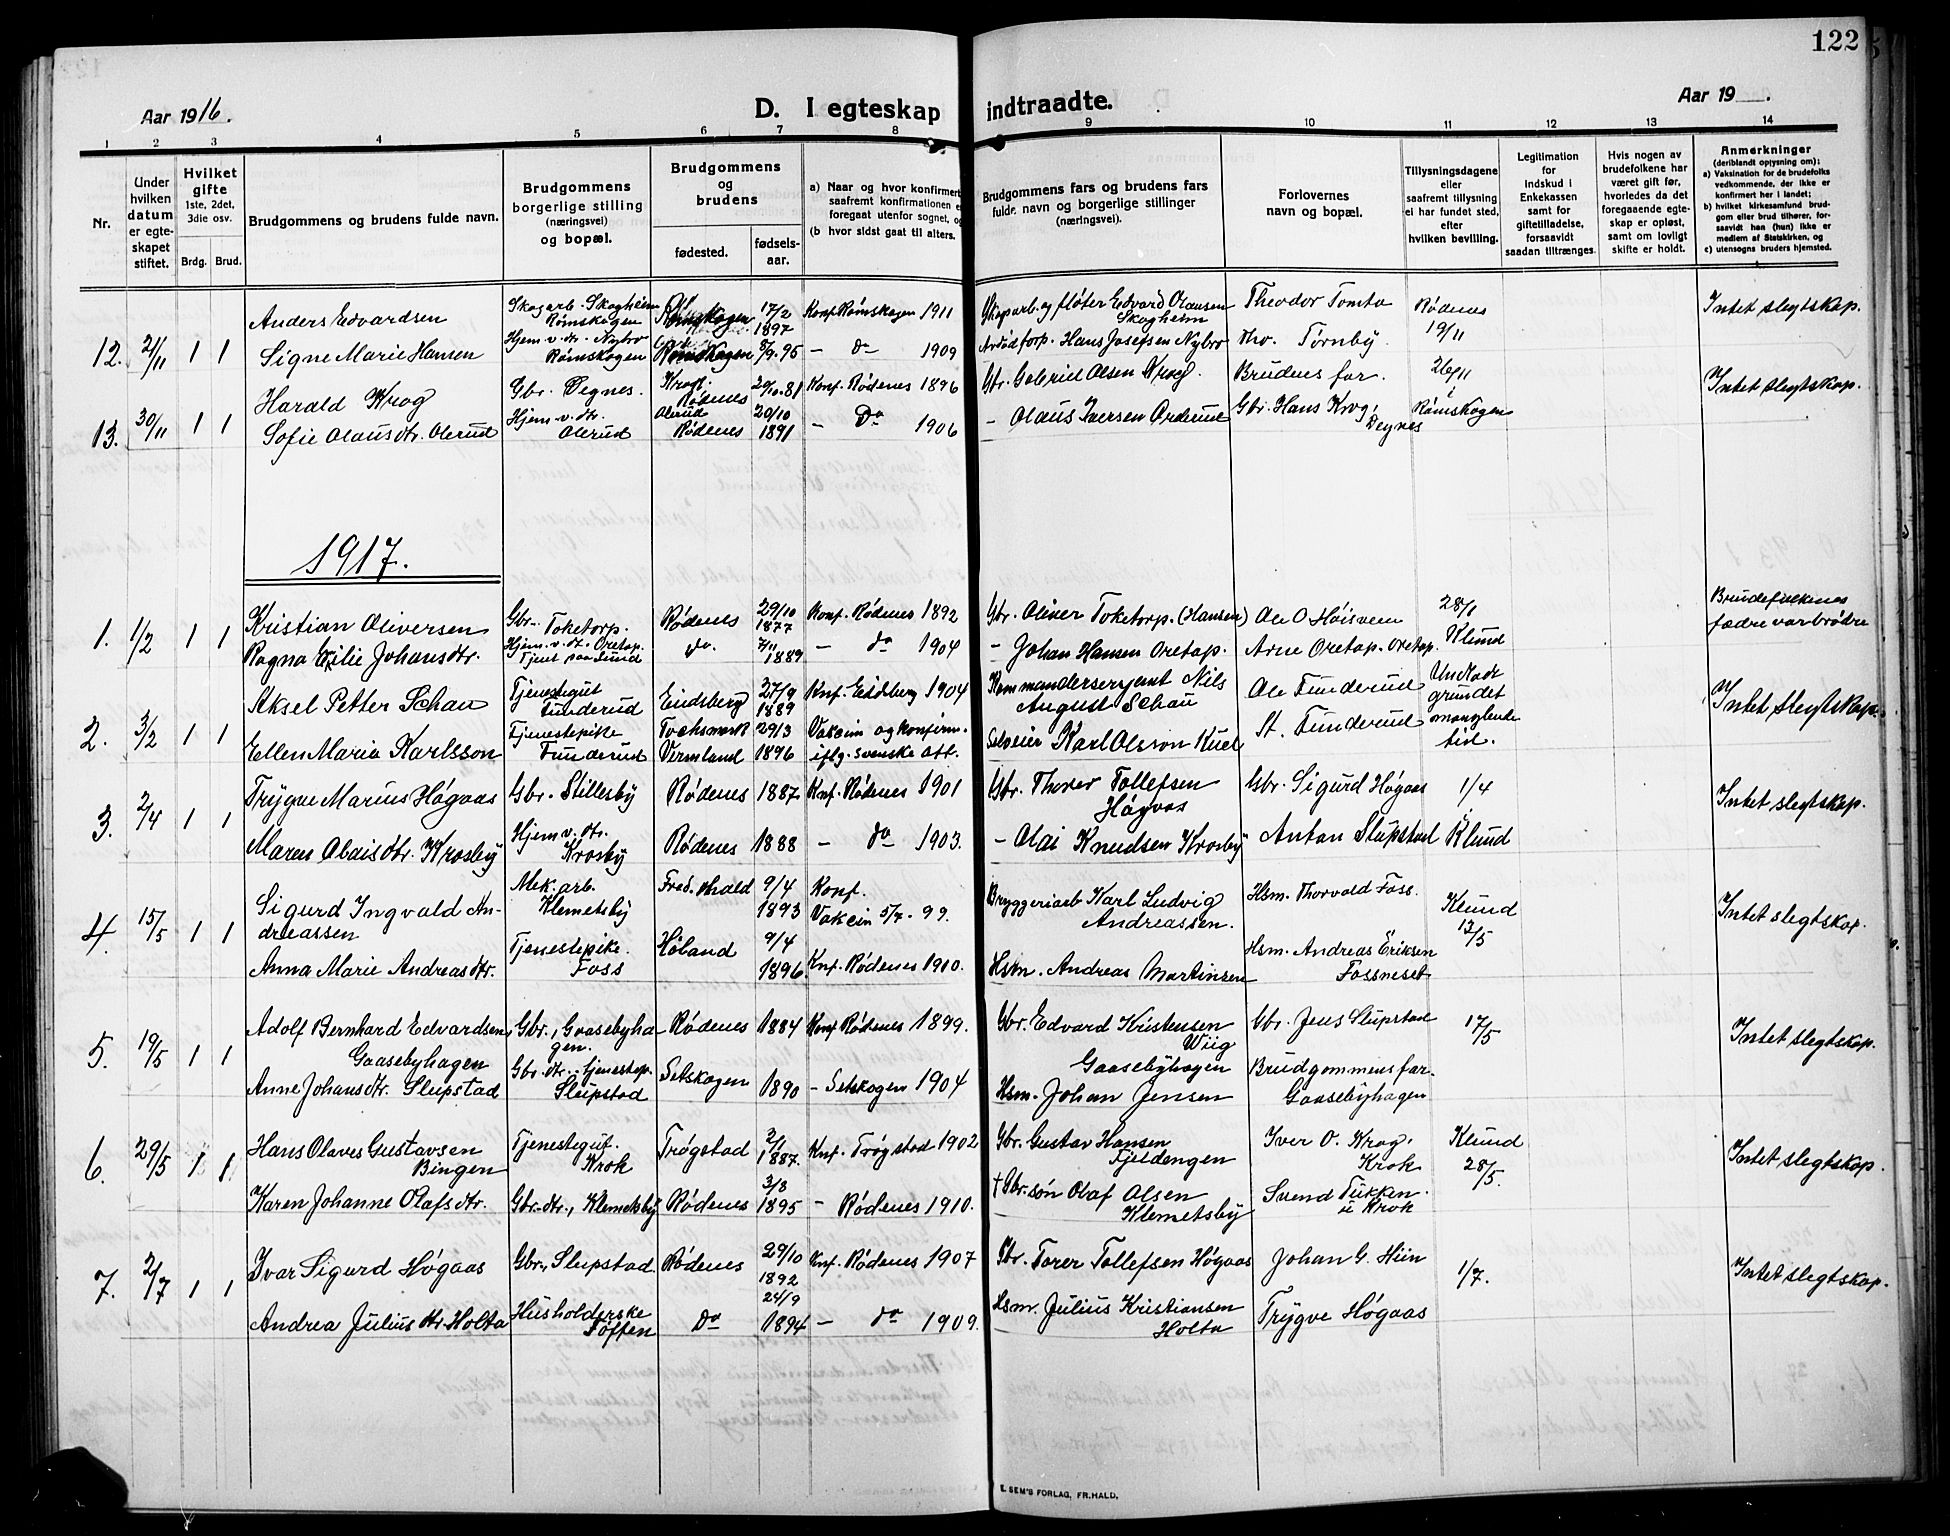 122
Aar 1916.
D. I egteskap indtraadte.
Aar 19 .
1 2 3 4 5 6 7 8 9 10 11 12 13 14
Nr.
Under hvilken datum er egteskapet stiftet.
Hvilket gifte 1ste, 2det, 3die osv.
Brdg. Brud.
Brudgommens og brudens fulde navn.
Brudgommens borgerlige stilling (næringsvei) og bopæl.
Brudgommens og brudens
fødested.
fødselsaar.
a) Naar og hvor konfirmert
saafremt konfirmationen e
foregaat utenfor sognet, og
(b hvor sidst gaat til alters.
Brudgommens fars og brudens fars
fuldr. navn og borgerlige stillinger
(næringsvei).
Forlovernes
navn og bopæl.
Tillysningsdagene
eller
saafremt tillysning
ei har fundet sted,
efter
hvilken bevilling.
Legitimation
for
Indskud i
Enkekassen
samt for
giftetilladelse,
forsaavidt
saadan tiltrænges.
Hvis nogen av
brudefolkene har
været gift før,
hvorledes da det
foregaaende egteskap er opløst,
samt om lovligt
skifte er holdt.
Anmerkninger
(deriblandt oplysning om):
a) Vaksination for de brudefolks
vedkommende, der ikke er
konfirmert her i landet;
b) hvilket kirkesamfund brudgom eller brud tilhører, forsaavidt haa (hun) ikke er
medlem af Statskirken, og
c) utensogns bruders hjemsted.
12. 21/11 1 1 Anders Edvardsen Skogarb. Skogheim Rømskogen Rømskogen 17/2 1897 Konf. Rømskogen 1911 Skogarb. og fløter Edvard Olausen Skogheim Theodor Tomta Rødenes 19/11 Intet slegtskap.
Signe Marie Hansen Hjem v. dr. Nybro Rømskogen Rømskogen 8/9. 95 - do 1909 Arbeidforp. Hans Josefsen Nybro Tho. Tørnby.
13. 30/11 1 1 Harald Krog Gbr. Degnes. Krog. Rødenes 29/10. 81 Konf. Rødenes 1896 Gbr. Gabriel Olsen Krog. Brudens far. 26/11 Rømskogen Intet slegtskap.
Sofie Olausdtr. Olerud Hjem v. dtr. Olerud Olerud Rødenes 20/10 1891 - Do 1906 - Olaus Iversen Orderud Gbr. Hans Krog, Degnes
1917.
1. 1/2 1 1 Kristian Oliversen Gbr. Toketorp. Rødenes 29/10 1877 Konf. Rødenes 1892 Gbr. Oliver Toketorp. (Hansen) Ole O Høisveen 28/1 Klund Brudefolkenes fædre var brødre
Ragna Emilie Johansdtr. Hjem v. dtr. Oretop. Tjent paa Lund do. 7/11 1889 - do 1904 - Johan Hansen Oretop. Arne Oretop. Oretop.
2. 3/2 1 1 Aksel Petter Schau Tjenestegut Funderud Eidsberg 27/9 1889 Knf. Eidsberg 1904 Kommandersersjant Nils August Schau Ole Funderud Undladt grundet manglende tid. Intet slegtskap.
Ellen Maria Karlsson Tjenestepike Funderud Tocksmark Vermland 29/3 1896 Vakcin og konfirm. iflg. svenske att. Selveier Karl Olsson Kuel St. Funderud
3. 2/4 1 1 Trygve Marius Høgaas Gbr. Stillesby Rødenes 1887. Knf. Rødenes 1901 Gbr. Thorer Tollefsen Høgaas Gbr. Sigurd Høgaas 1/4 Klund Intet slegtskap.
Maren Olaisdtr. Krosby Hjem v. dtr. Krosby Rødenes 1888 - do 1903. - Olai Knudsen Krosby Anton Slupstad
4. 15/5 1 1 Sigurd Ingvald Andreassen Mek. arb. Klemetsby Fred.shald 9/4 1893 Konf. Vakcin 5/7. 99. Bryggeriarb Karl Ludvig Andreassen. Hsm. Thorvald Foss. Klund 13/5 Intet slegtskap.
Anna Marie Andreasdtr. Tjenestepike. Foss Høland 9/4 1896. Knf. Rødenes 1910. Hsm. Andreas Martinsen Hsm. Andreas Eriksen Fossneset
5. 19/5 1 1 Adolf Bernhard Edvardsen, Gaasebyhagen Gbr., Gaasebyhagen. Rødenes 1884 Konf. Rødenes 1899. Gbr. Edvard Kristensen Wiig Gaasebyhagen Gbr. Jens Slupstad 17/5 Intet slegtskap.
Anne Johansdtr. Slupstad Gbr. dtr. tjenestep. Slupstad Setskogen 1890 - Setskogen 1904 Hsm. Johan Jensen Brudgommens far. Gaasebyhagen
6. 29/5 1 1 Hans Olaves Gustavsen Bingen Tjenestegut. Krok Trøgstad 2/1 1887. Knf. Trøgstad 1902 Gbr. Gustav Hansen Fjeldengen Iver O. Krog. Krok Klund 28/5. Intet slegtskap.
Karen Johanne Olafsdtr. Gbr.-dtr., Klemetsby Rødenes 3/8 1895 - Rødenes 1910. † Gbr.søn Olaf Olsen Klemetsby Svend Tukken u Krok
7. 2/7 1 1 Ivar Sigurd Høgaas Gbr., Slupstad. Rødenes 29/10 1892 Knf. Rødenes 1907 Gbr. Torer Tollefsen Høgaas Johan G. Hiin 1/7. Intet slegtskap.
Andrea Julius dtr. Holta Husholderske Toften Do 24/9 1894 - do 1909. Hsm. Julius Kristiansen Holta Trygve Høgaas
E. SEM'S FORLAG, FR.HALD.